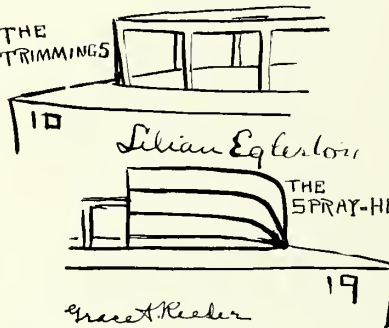 THE
TRIMMINGS
10
Lilian Egleston
THE
SPRAY-H
19
Grace A. Reeder